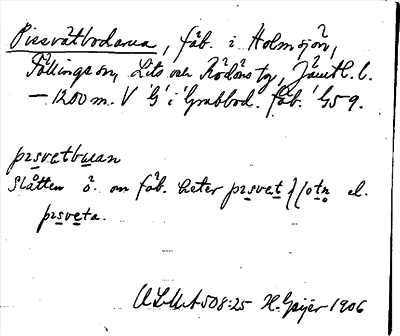 Pissvåtbodarna, fäb. i Holmsjön,
Föllinge sn, Lits och Rödöns tg, Jämtl. l.
— 1200 m. V 'G' i Grubbod. fäb. G59.
pɪsvetbuan
Slåtten ö. om fäb. heter
pɪsveta.
ULMA 508:25 H. Geijer 1906